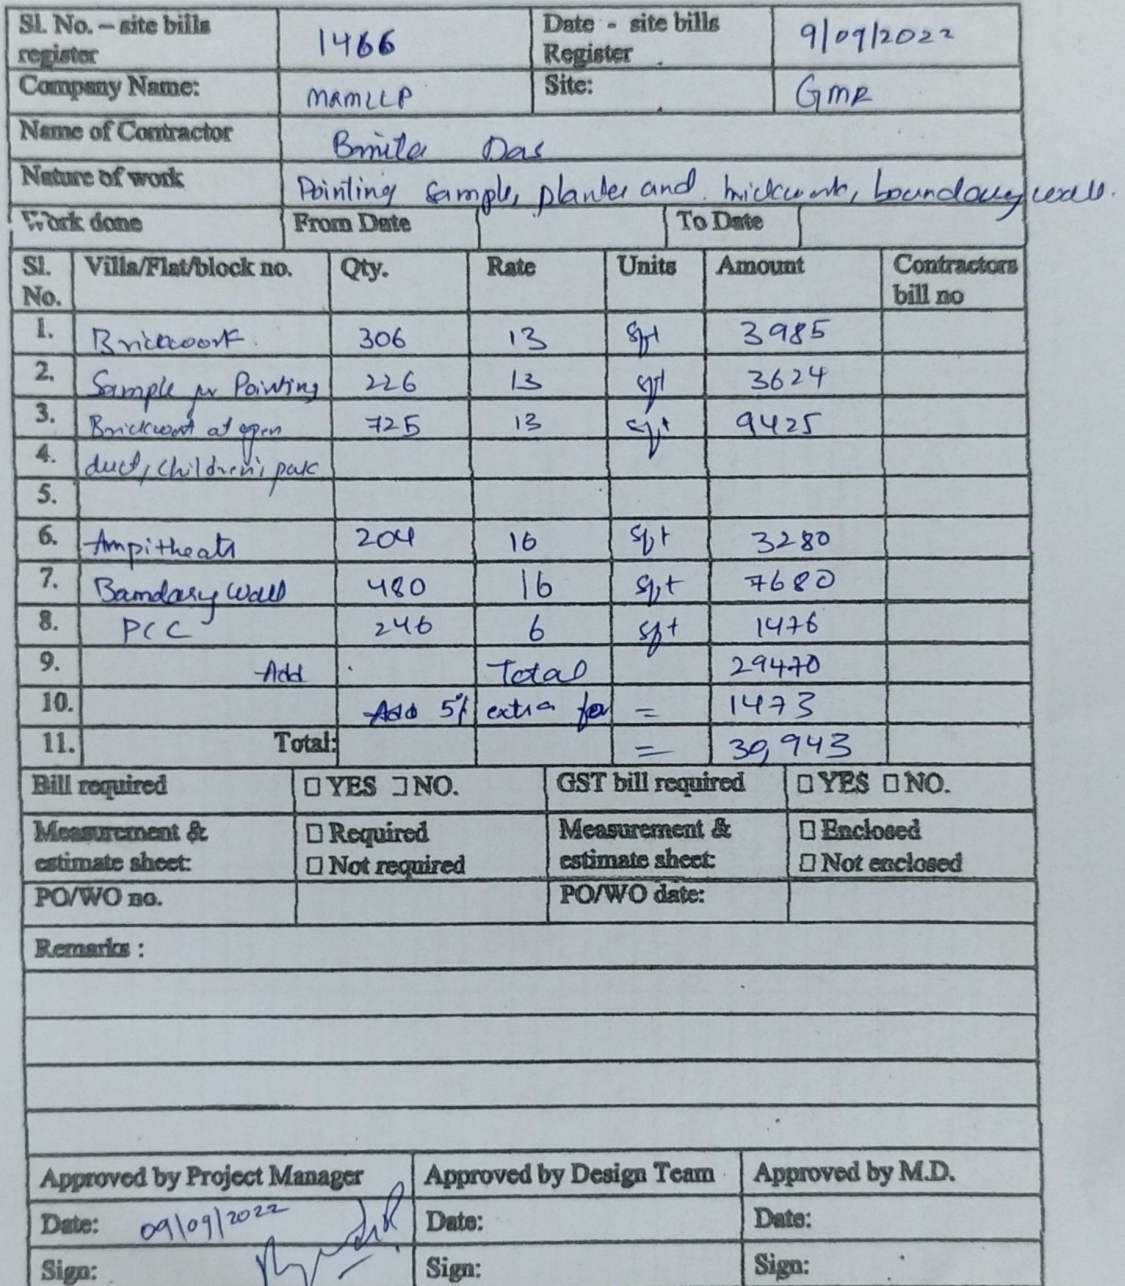 Sl. No. – site bills register 1466 Date - site bills Register 9/09/2022
Company Name: MRMLLP Site: GMR
Name of Contractor Bmita Das
Nature of work Pointing sample, planter and brickwork, boundary wall.
Work done From Date To Date
Sl. No. Villa/Flat/block no. Qty. Rate Units Amount Contractors bill no
1. Brickwork. 306 13 sft 3985
2. Sample for Pointing 226 13 sft 3624
3. Brickwork at open 725 13 sft 9425
4. duct, children's park
5.
6. Ampitheatr 204 16 sft 3280
7. Bamdary wall 480 16 sft 7680
8. PCC 246 6 sft 1476
9. Add Total 29470
10. Add 5% extra for = 1473
11. Total: = 30,943
Bill required ☐ YES ☐ NO. GST bill required ☐ YES ☐ NO.
Measurement & estimate sheet: ☐ Required ☐ Not required Measurement & estimate sheet: ☐ Enclosed ☐ Not enclosed
PO/WO no. PO/WO date:
Remarks :
Approved by Project Manager Approved by Design Team Approved by M.D.
Date: 09/09/2022 Date: Date:
Sign: Sign: Sign: